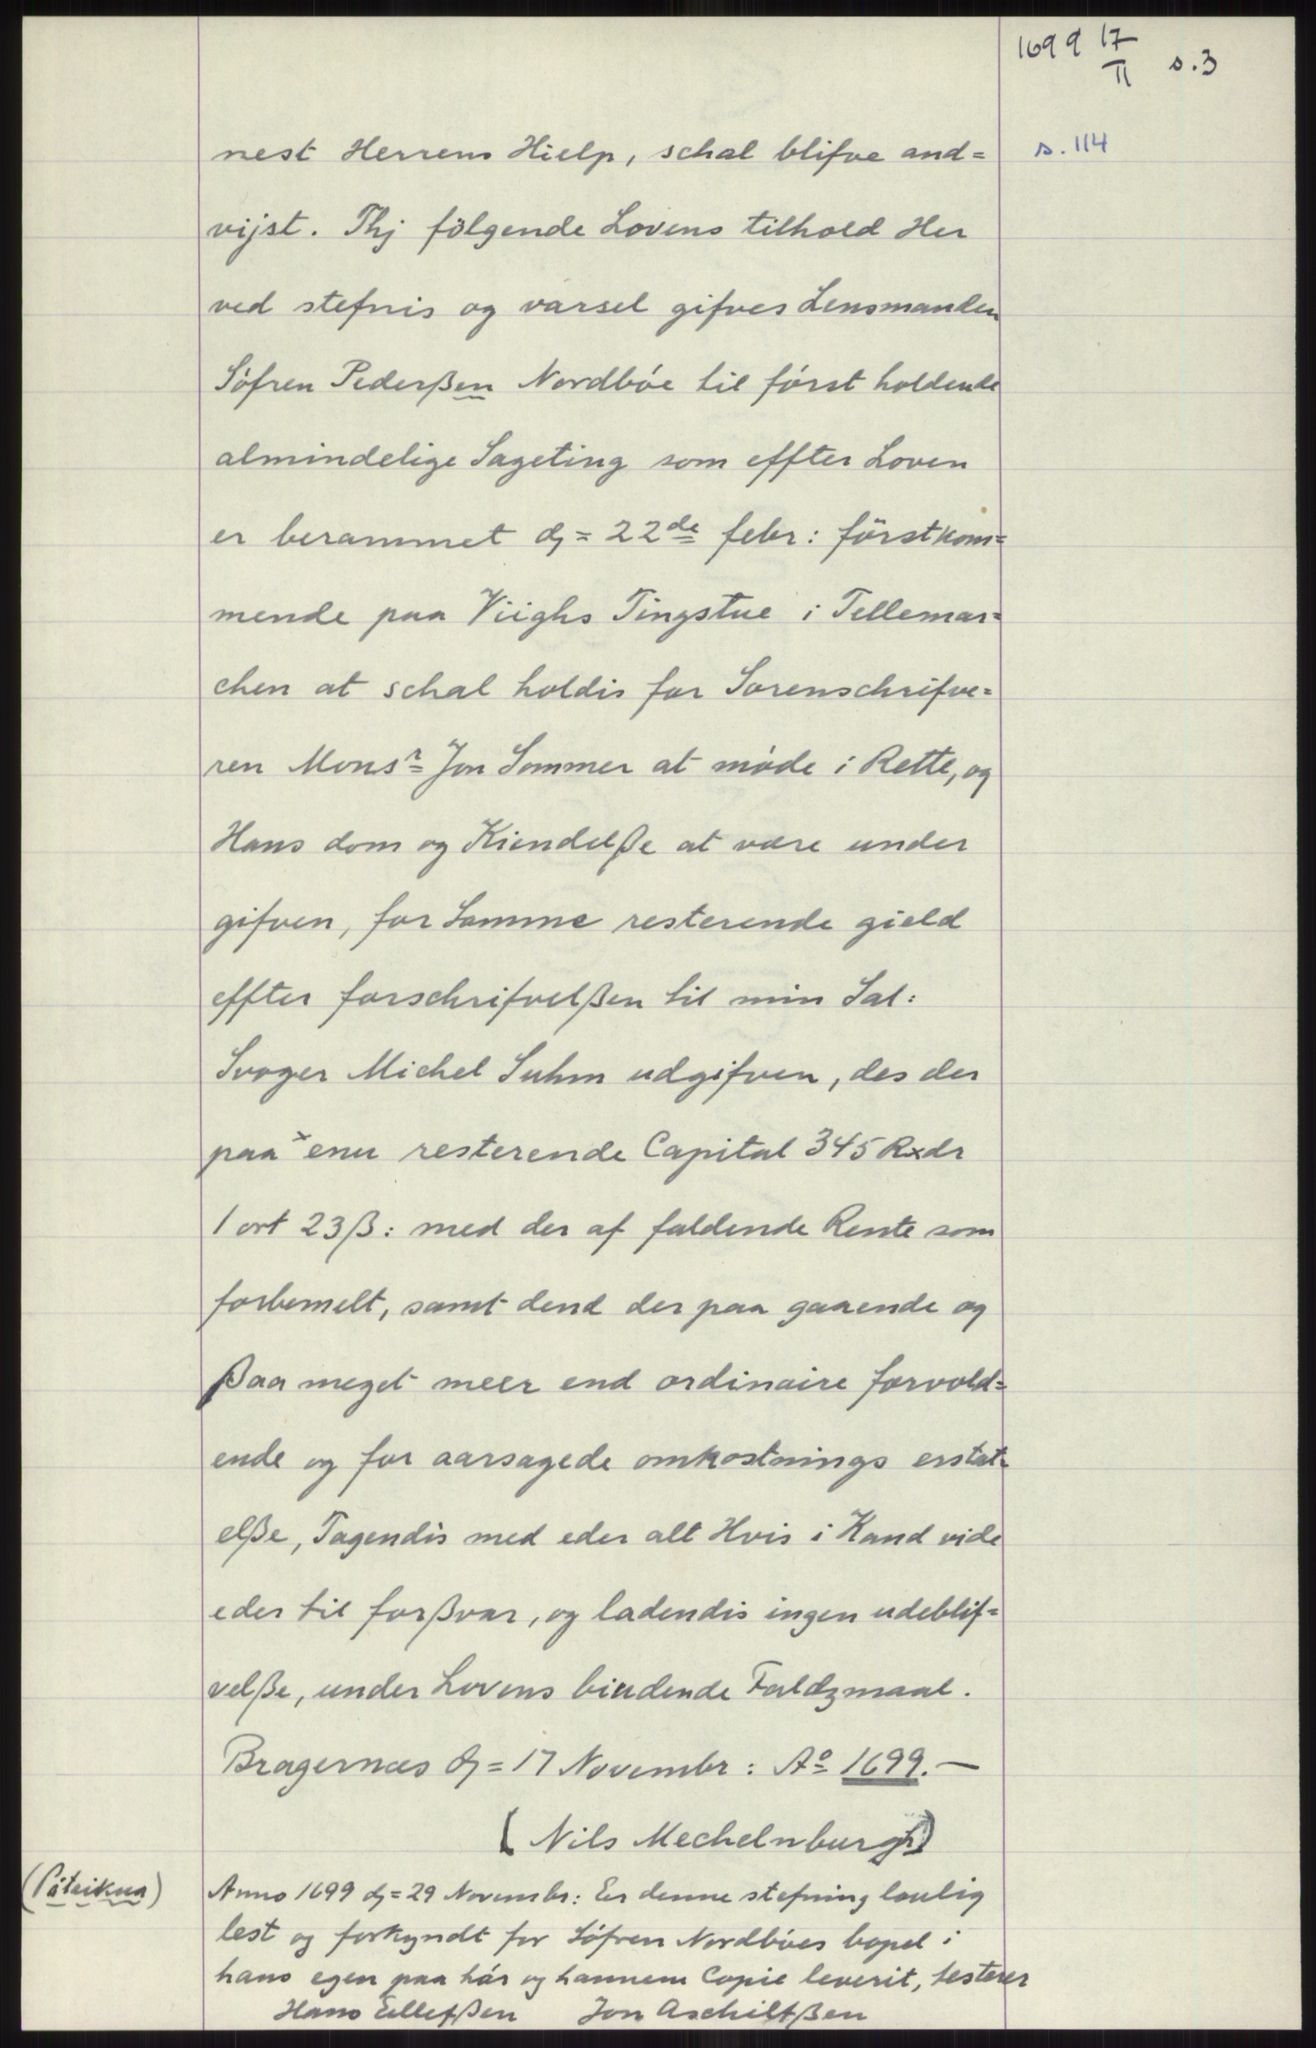 1699 17/II s.3
s. 114
nest Herrens Hielp, schal blifve and=
vijst. Thj följende Lovens tilhold Her
ved stefnis og varsel gifves Lensmanden
Söfren Pederßen Nordböe til först holdende
almindelige Sageting som effter Loven
er berammet dj= 22de febr: förstkom=
mende paa Viighs Tingstue i Tellemar=
chen at schal holdis for Sorenschrifve=
ren Monsr Jon Sommer at möde i Rette, og
Hans dom og Kiendelße at være under
gifven, for Samme resterende gield
effter forschrifvelßen til min Sal:
Svoger Michel Suhm udgifven, des der
paa x enu resterende Capital 345 Rxdr
1 ort 23 ß: med der af faldende Rente som
forbemelt, samt dend der paa gaaende og
ßaa meget meer end ordinaire forvold=
ende og for aarsagede omkostnings erstat=
elße, Tagendis med eder alt Hvis i Kand vide
eder til forßvar, og ladendis ingen udeblif=
velße, under Lovens bindende Faldzmaal.
Bragernæs dj= 17 Novembr: Ao 1699.—
(Nils Mechelnburgh)
(Påteikna)
Anno 1699 dj= 29 Novembr: Er denne stefning loulig
lest og forkyndt for Söfren Nordböes bopel i
hans egen paa hör og hannem Copie leverit, testerer
Hans Ellefßen Jon Aschiltßen